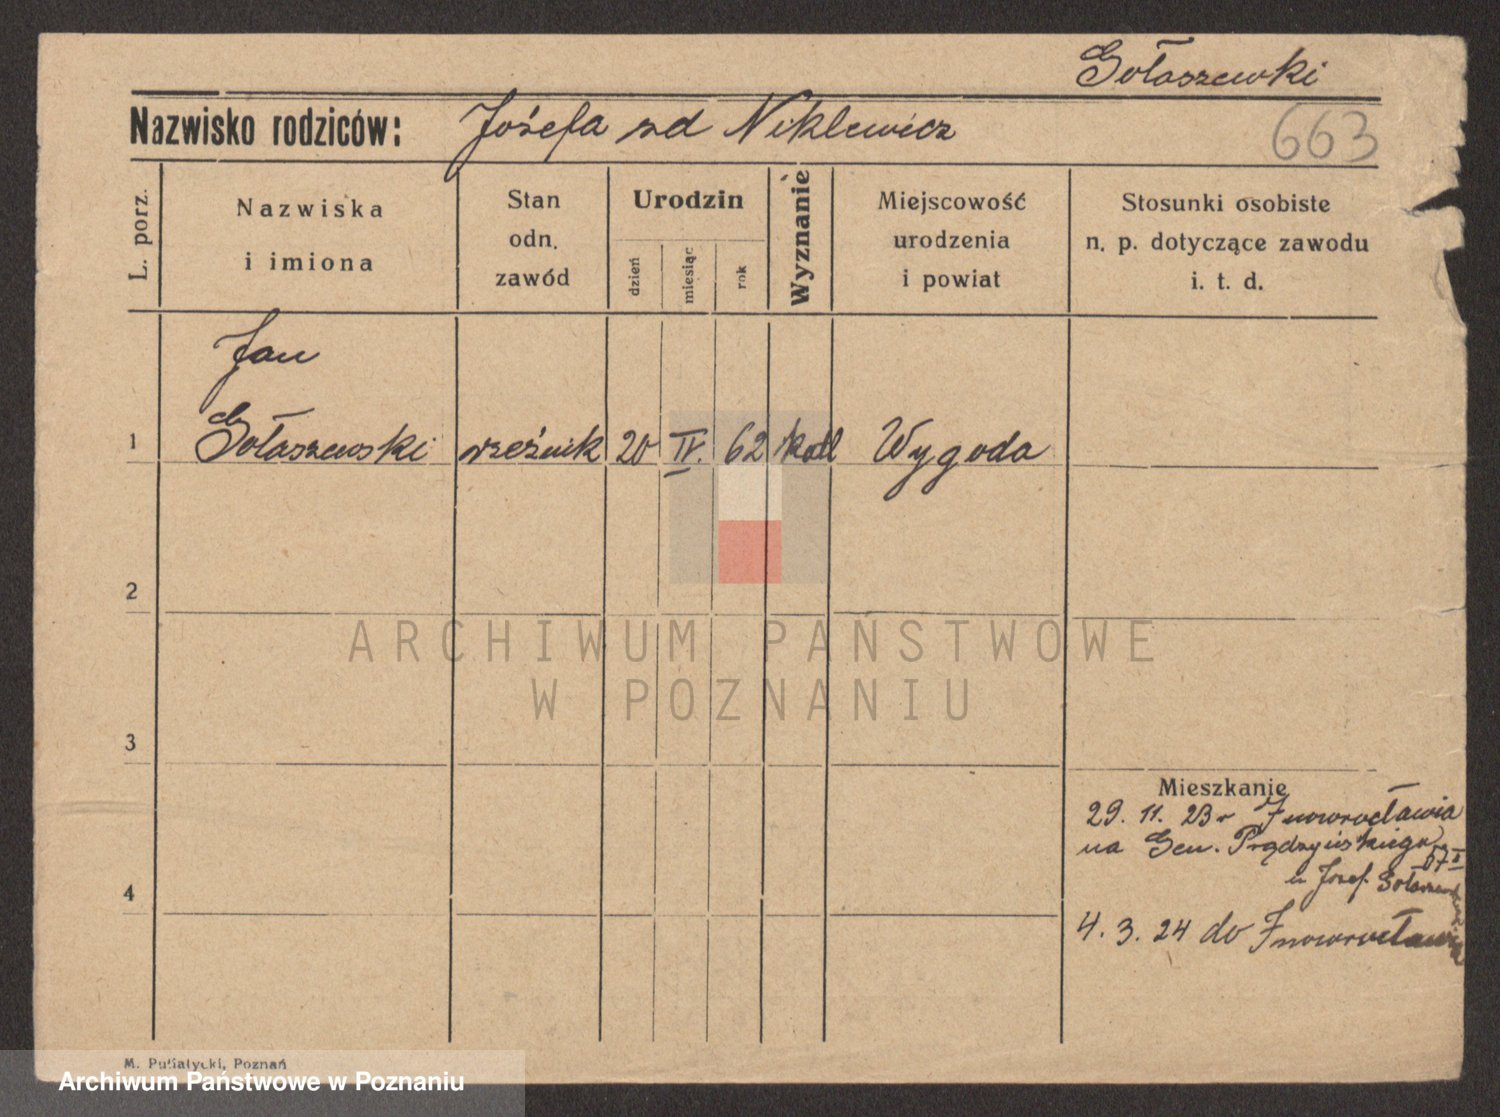 Gołaszewski
Nazwisko rodziców: Józefa zd Niklewicz
663
L. porz.
Nazwiska
i imiona
Stan
odn.
zawód
Urodzin
dzień
miesiąc
rok
Wyznanie
Miejscowość
urodzenia
i powiat
Stosunki osobiste
n. p. dotyczące zawodu
i. t. d.
Jan
1 Gołaszewski rzeźnik 20 IV. 62 katl Wygoda
2
ARCHIWUM PAŃSTWOWE
W POZNANIU
3
Mieszkanie
29. 11. 23 r Inowrocławia
na Gen. Prądzyńskiego 57 II
u Józef. Gołaszewskiego
4
4. 3. 24 do Inowrocławia
M. Putiatycki, Poznań
Archiwum Państwowe w Poznaniu